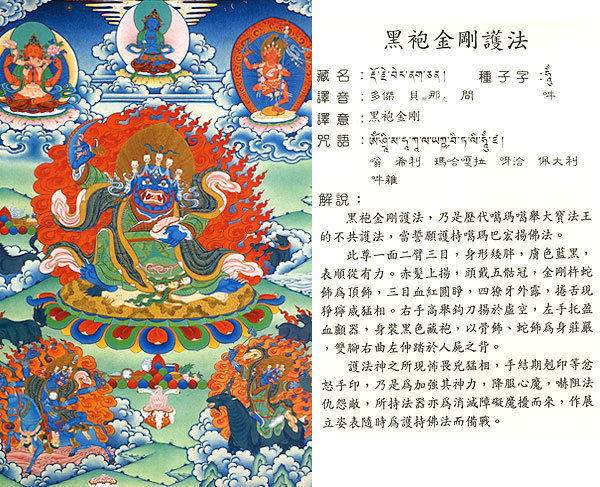 黑袍金剛護法
藏名：རྡོ་རྗེ་བེར་ནག་ཅན། 種子字：ཧཱུྃ
譯音：多傑 貝 那 間 吽
譯意：黑袍金剛
咒語：
嗡 希利 瑪哈嘎拉 呀洽 佩大利
吽雜
解說：
黑袍金剛護法，乃是歷代噶瑪噶舉大寶法王
的不共護法，當誓願護持噶瑪巴宏揚佛法。
此尊一面二臂三目，身形矮胖，膚色藍黑，
表順從有力。赤髮上揚，頭戴五骷冠，金剛杵蛇
飾爲頂飾，三目血紅圓睜，四獠牙外露，捲舌現
猙獰威猛相。右手高舉鉤刀揚於虛空，左手托盈
血顱器，身裳黑色藏袍，以骨飾、蛇飾爲身莊嚴，
雙腳右曲左伸踏於人屍之背。
護法神之所現怖畏兇猛相，手結期剋印等忿
怒手印，乃是爲加強其神力，降服心魔，嚇阻法
仇怨敵，所持法器亦爲消滅障礙魔擾而來，作展
立姿表隨時爲護持佛法而備戰。